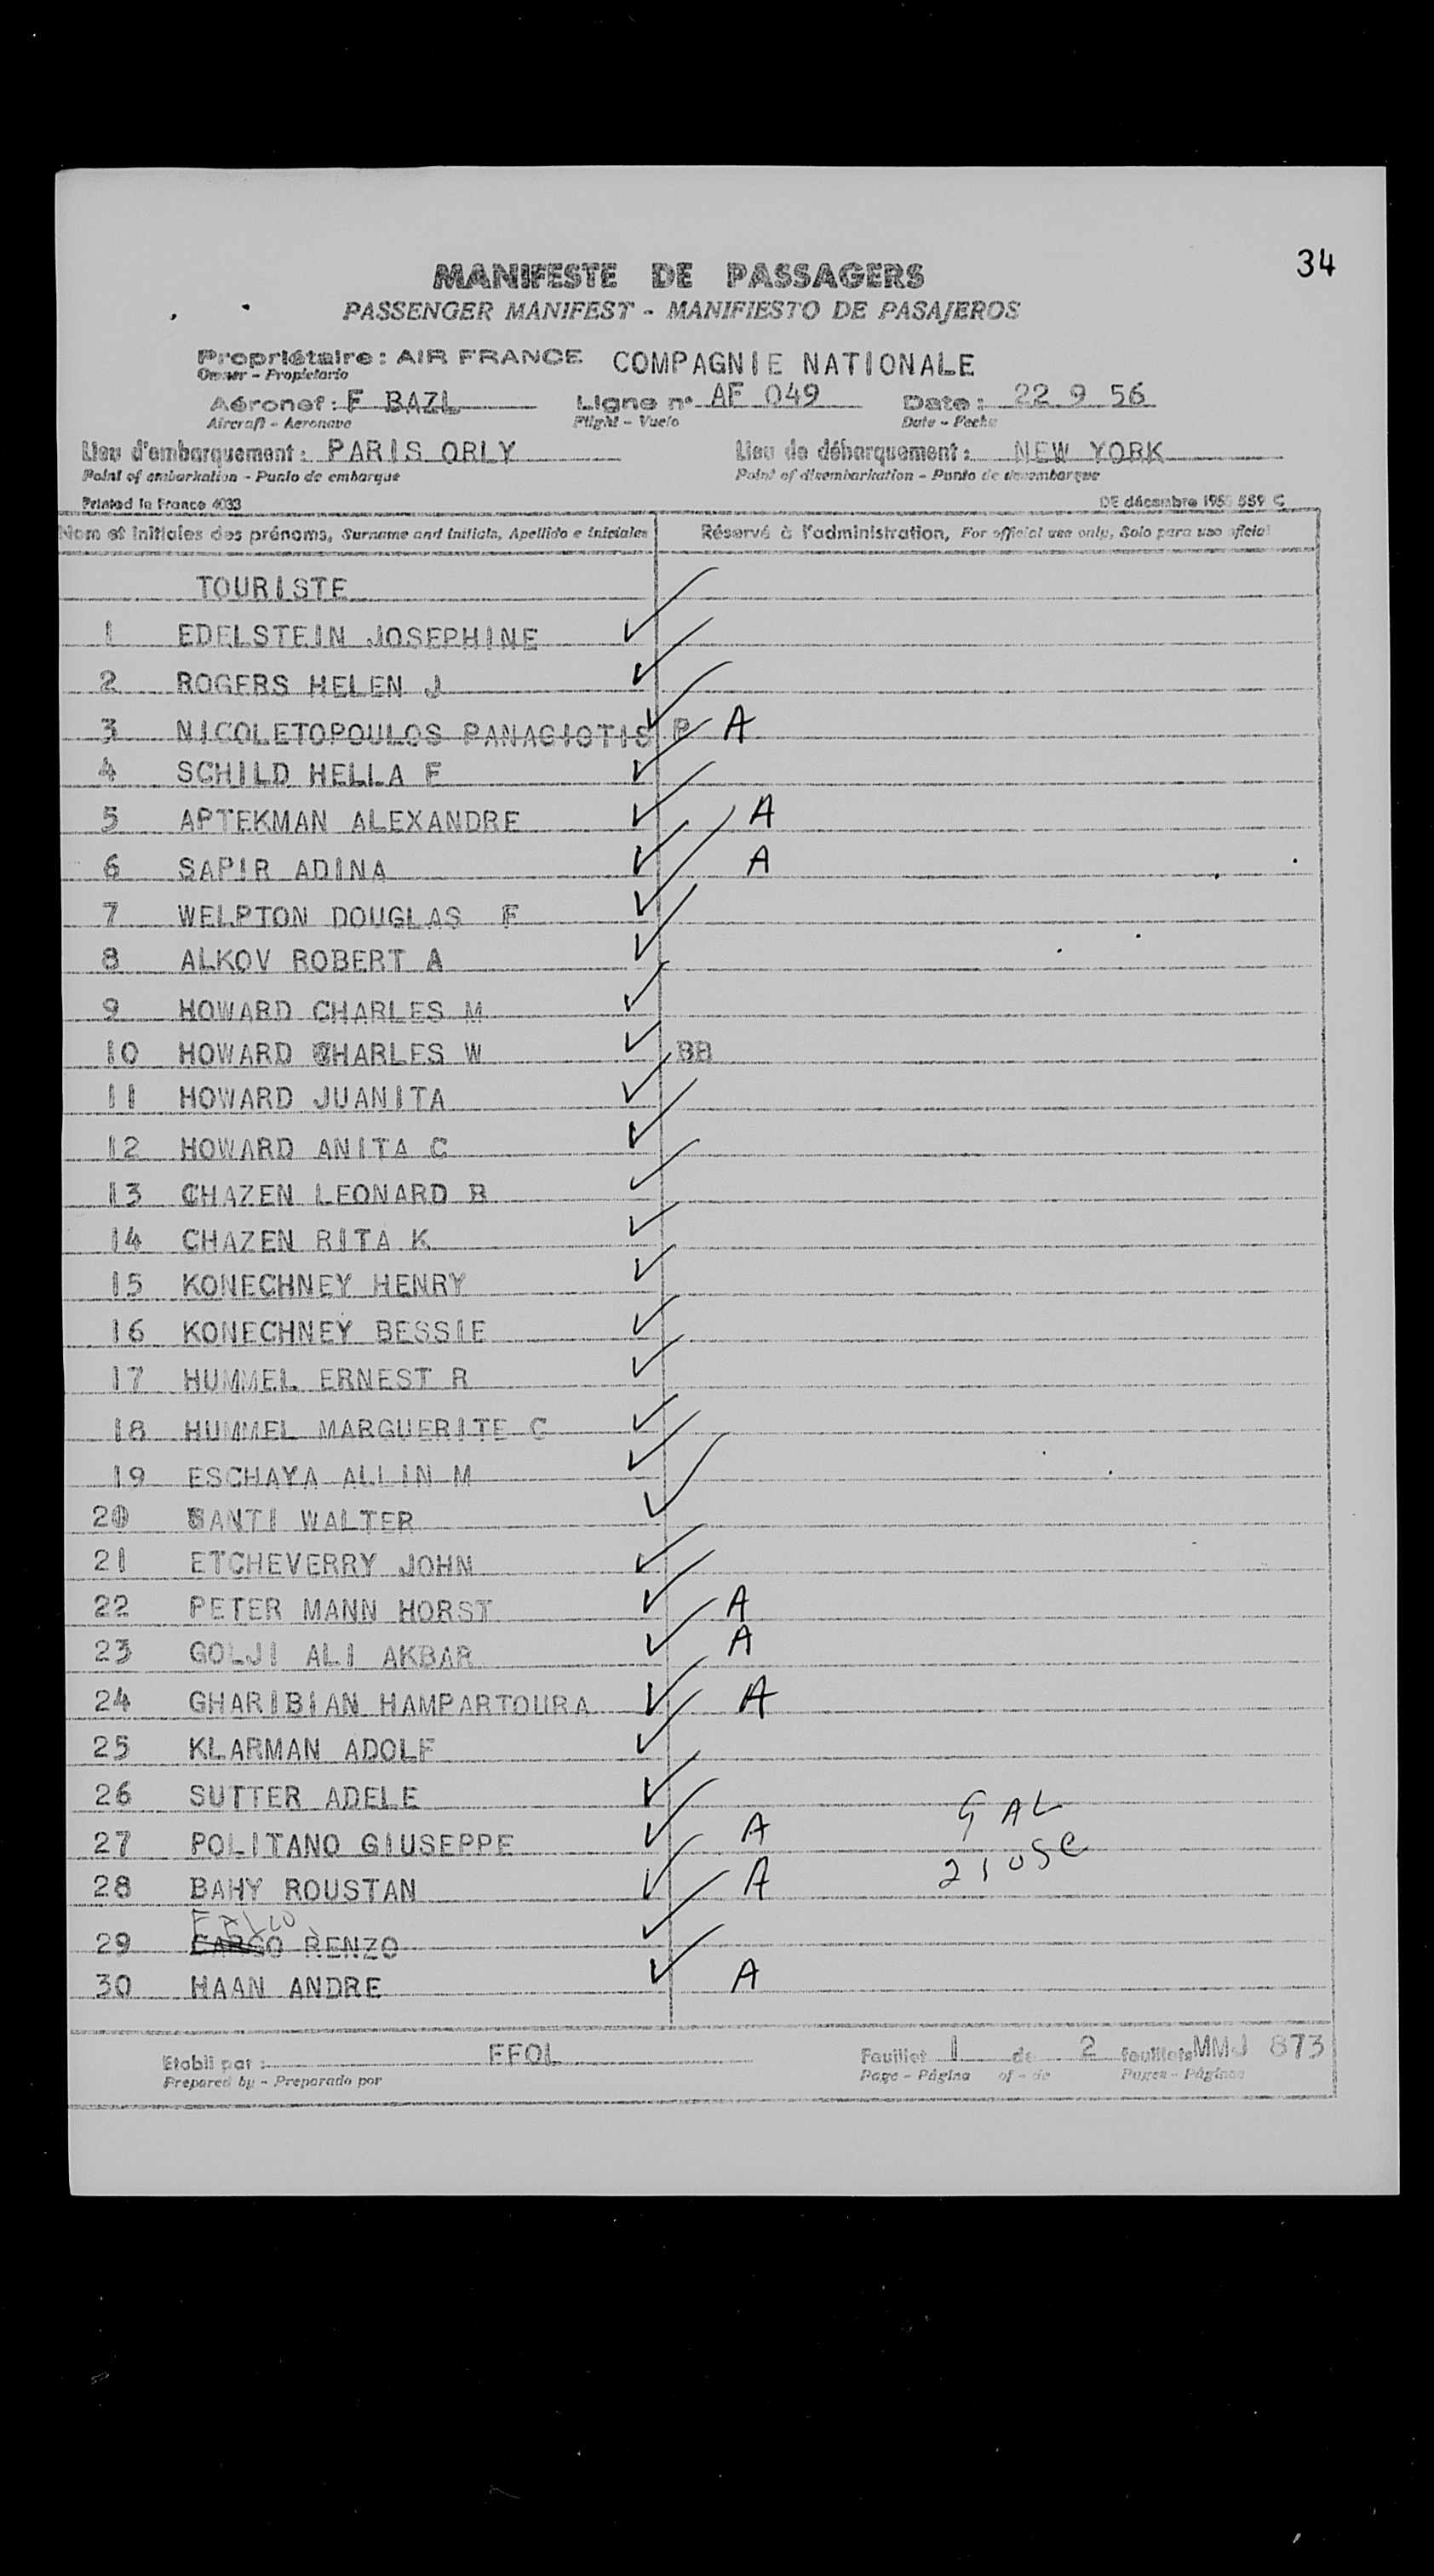 34
MANIFESTE DE PASSAGERS
PASSENGER MANIFEST - MANIFIESTO DE PASAJEROS
Propriétaire : AIR FRANCE COMPAGNIE NATIONALE
Owner - Propietario
Aéronef : F BAZL Ligne n° AF 049 Date : 22 9 56
Aircraft - Aeronave Flight - Vuelo Date - Fecha
Lieu d'embarquement : PARIS ORLY Lieu de débarquement : NEW YORK
Point of embarkation - Punto de embarque Point of disembarkation - Punto de desembarque
Printed in France 4033 DE décembre 195 559 C
Nom et initiales des prénoms, Surname and initials, Apellido e iniciales Réservé à l'administration, For official use only, Solo para uso oficial
TOURISTE
1 EDELSTEIN JOSEPHINE ✓
2 ROGERS HELEN J ✓
3 NICOLETOPOULOS PANAGIOTIS P ✓ A
4 SCHILD HELLA F ✓
5 APTEKMAN ALEXANDRE ✓ A
6 SAPIR ADINA ✓ A
7 WELPTON DOUGLAS F ✓
8 ALKOV ROBERT A ✓
9 HOWARD CHARLES M ✓
10 HOWARD CHARLES W ✓ BB
11 HOWARD JUANITA ✓
12 HOWARD ANITA C ✓
13 CHAZEN LEONARD B ✓
14 CHAZEN RITA K ✓
15 KONECHNEY HENRY ✓
16 KONECHNEY BESSIE ✓
17 HUMMEL ERNEST R ✓
18 HUMMEL MARGUERITE C ✓
19 ESCHAYA ALLIN M ✓
20 SANTI WALTER ✓
21 ETCHEVERRY JOHN ✓
22 PETER MANN HORST ✓ A
23 GOLJI ALI AKBAR ✓ A
24 GHARIBIAN HAMPARTOURA ✓ A
25 KLARMAN ADOLF ✓
26 SUTTER ADELE ✓
GAL
27 POLITANO GIUSEPPE ✓ A
28 BAHY ROUSTAN ✓ A
FALCO
29 CARGO RENZO ✓
30 HAAN ANDRE ✓ A
Etabli par : FFOL Feuillet 1 de 2 feuillets MMJ 873
Prepared by - Preparado por Page - Página of - de Pages - Páginas